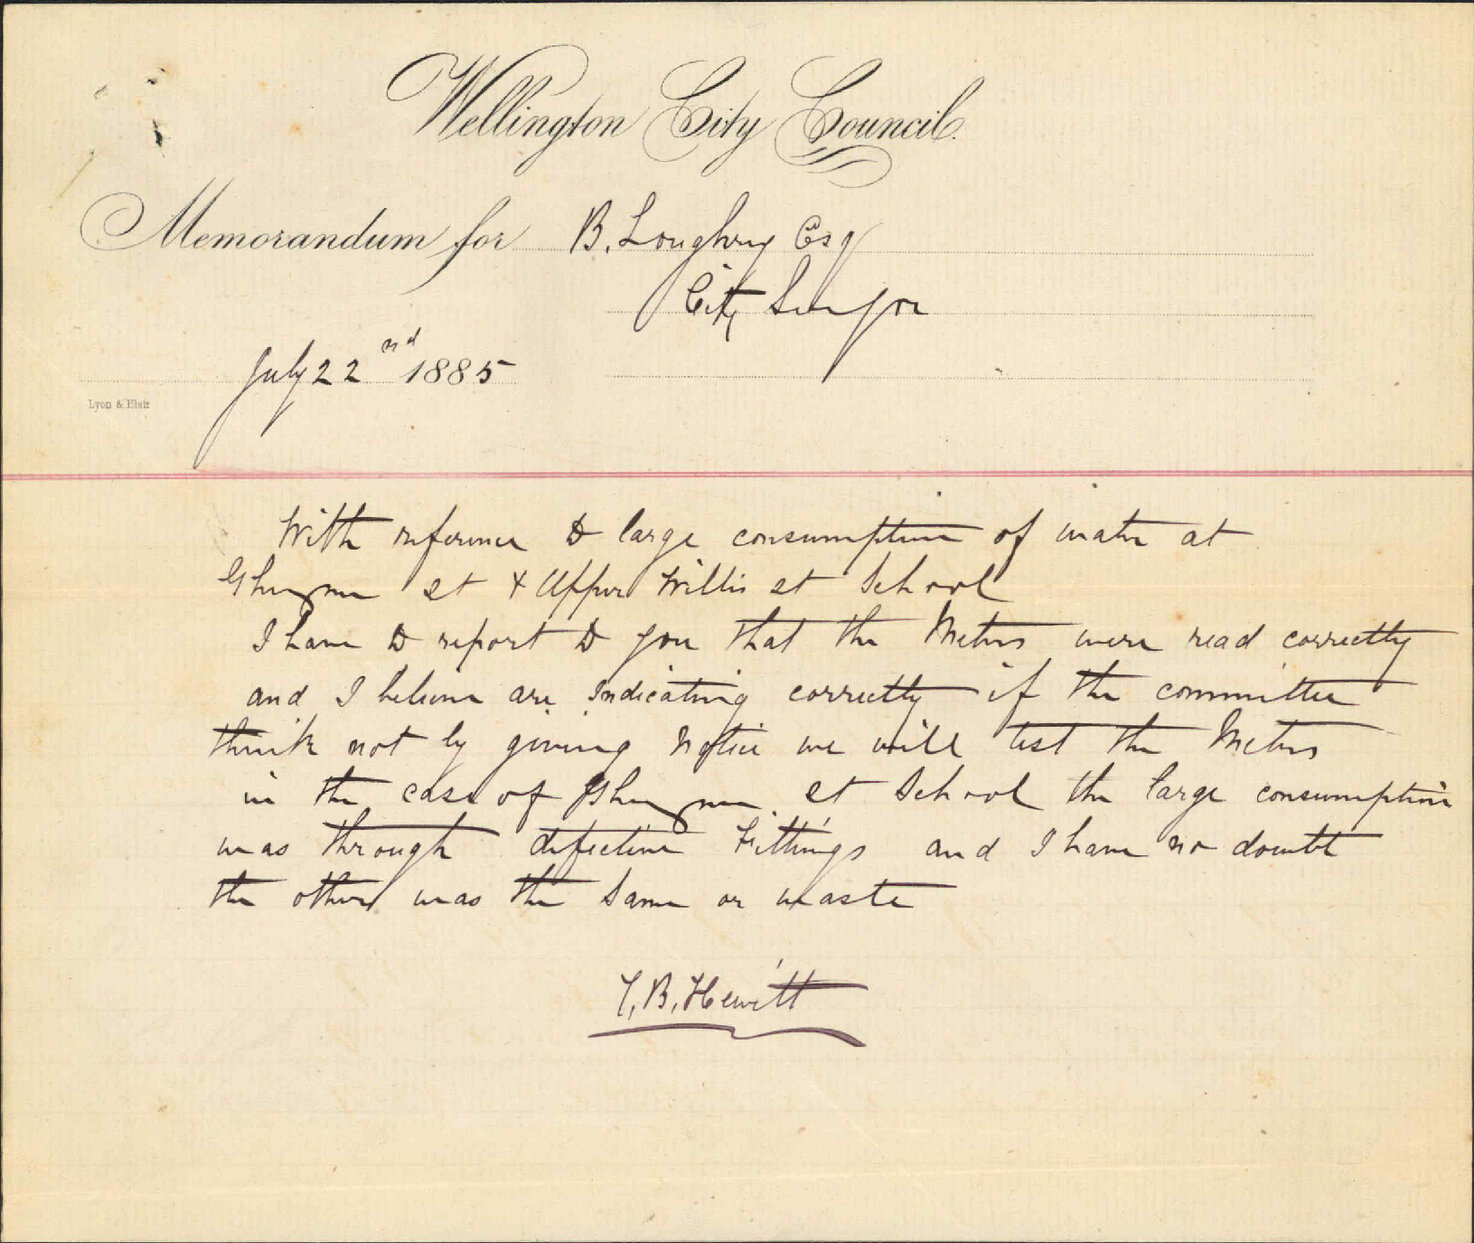 Wellington City Council.
Memorandum for B. Loughrey Esq
City Surveyor
July 22nd 1885
Lyon & Blair
With reference to large consumption of water at
Ghuznee St & Upper Willis St School
I have to report to you that the Meters were read correctly
and I believe are indicating correctly if the committee
think not by giving notice we will test the Meters
in the case of Ghuznee St School the large consumption
was through defective Fittings and I have no doubt
the other was the same or waste
T. B. Hewitt